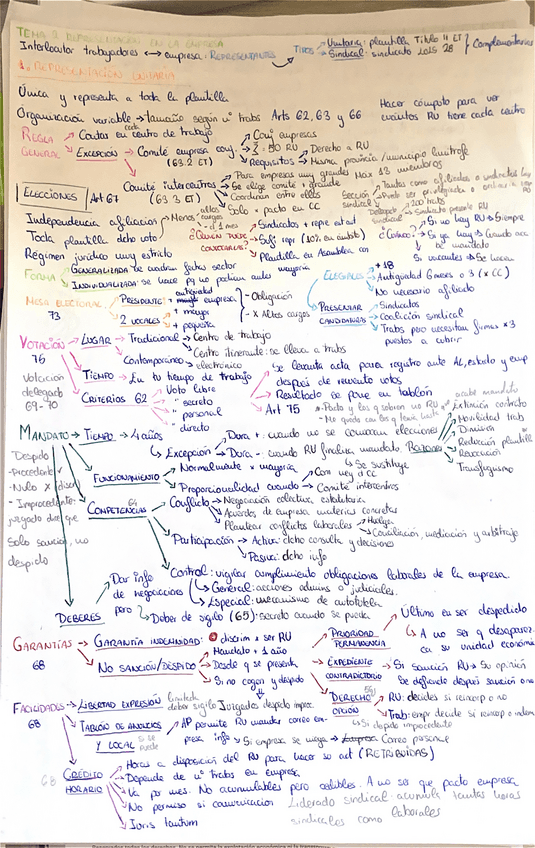 TEMA 2 REPRESENTACIÓN EN LA EMPRESA
Interlocutor trabajadores ↔ empresa: REPRESENTANTES → TIPOS → Unitaria: plantilla Título II ET
→ Sindical: sindicato LOLS 28 } Complementarias
1. REPRESENTACIÓN UNITARIA
Única y representa a toda la plantilla
Organización variable → tamaño según nº trabs Arts 62, 63 y 66
Hacer cómputo para ver
cuántos RU tiene cada centro
REGLA GENERAL → Cuotas en cada centro de trabajo
→ EXCEPCIÓN → Comité empresa conj. (63.2 ET)
→ Conj empresas
→ Σ = 50 RU
→ Requisitos → Derecho a RU
→ Misma provincia/municipio limítrofe
Comité intercentros (63 3 ET)
→ Para empresas muy grandes Max 13 miembros
→ Se elige comité + grande
→ Coordinan entre ellos
→ Solo x pacto en CC
ELECCIONES Art 67
Independencia afiliación
Toda plantilla dcho voto
→ Menos altos cargos
- d 1 mes
Régimen jurídico muy estricto
¿QUIÉN PUEDE CONVOCARLAS?
→ Sindicatos + repre estat
→ Sufi repr (10% en ámbito)
→ Plantilla en Asamblea con mayoría
Sección sindical
Delegado sindical
200 trabs
Sindicato presente RU
¿Cuándo?
→ Si no hay RU → Siempre
→ Si ya hay → Cuando aca be mandato
→ Si vacantes → Se hacen
FORMA → GENERALIZADA: se acuerdan fechas sector
→ INDIVIDUALIZADA: se hace pq no podían antes
ELEGIBLES → + 18
→ Antigüedad 6meses o 3 (x CC)
→ No necesario afiliado
MESA ELECTORAL 73
→ PRESIDENTE → + antigüedad empresa
→ 2 VOCALES → + mayor
→ + pequeña
- Obligación
- X Altos cargos
→ PRESENTAR CANDIDATURAS
→ Sindicatos
→ Coalición sindical
→ Trabs pero necesitan firmas x3 puestos a cubrir
VOTACIÓN 75
→ LUGAR → Tradicional → Centro de trabajo
→ Centro itinerante: se lleva a trabs
→ Contemporáneo → electrónico
→ TIEMPO → En tu tiempo de trabajo
→ CRITERIOS 62 → Voto libre
→ " secreto
→ " personal
→ directo
Votación delegado 69-70
→ Se levanta acta para registro ante AL, estado y emp después de recuento votos
→ Resultado se pone en tablón
→ Art 75
MANDATO → TIEMPO → 4 años
→ Excepción → Dura +: cuando no se convocan elecciones
→ Dura -: cuando RU finaliza mandato. RAZONES
→ Se sustituye
→ acabe mandato
→ Extinción contrato
→ Movilidad trab
→ Dimisión
→ Reducción plantilla
→ Revocación
→ Transfuguismo
Despido
- Procedente ✓
- Nulo x discri
- Improcedente: juzgado dice que
Solo sanción, no despido
→ FUNCIONAMIENTO → Normalmente x mayoría
→ Proporcionalidad cuando → Com neg d CC
→ Comité intercentros
→ COMPETENCIAS 64
→ Conflicto → Negociación colectiva estatutaria
→ Acuerdos de empresa materias concretas
→ Plantear conflictos laborales → Huelga
→ Conciliación, mediación y arbitraje
→ Participación → Activa: dcho consulta y decisiones
→ Pasiva: dcho info
→ Control: vigilar cumplimiento obligaciones laborales de la empresa.
→ General: acciones admins o judiciales.
→ Especial: mecanismo de autotutela
DEBERES → Dar info de negociaciones
pero → Deber de sigilo (65): secreto cuando se pueda
GARANTÍAS 68
→ GARANTÍA INDEMNIDAD: discrim x ser RU
→ NO SANCIÓN/DESPIDO → Mandato + 1 año
→ Desde q se presenta
→ Si no cogen y despido
→ Juzgados despido improc
→ PRIORIDAD PERMANENCIA → Último en ser despedido
→ A no ser q desaparez. ca su unidad económica
→ EXPEDIENTE CONTRADICTORIO → Si sanción RU → Su opinión
Se defiende después sanción o no
→ DERECHO OPCIÓN → RU: decides si reincorp o no
→ Trab: empr decide si reincorp o indem
→ Si despido improcedente
FACILIDADES 68
→ LIBERTAD EXPRESIÓN limitada deber sigilo
→ TABLÓN DE ANUNCIOS Y LOCAL si se puede
→ AP permite RU mandar correo em-
presa info → Si empresa se niega → Correo personal
68 → CRÉDITO HORARIO → Horas a disposición del RU para hacer su act (RETRIBUIDAS)
→ Depende de nº trabs en empresa
→ Va por mes. No acumulables pero cedibles. A no ser que pacto empresa
→ No permiso si comunicación
→ Iuris tantum
Liderado sindical: acumula tantas horas
sindicales como laborales